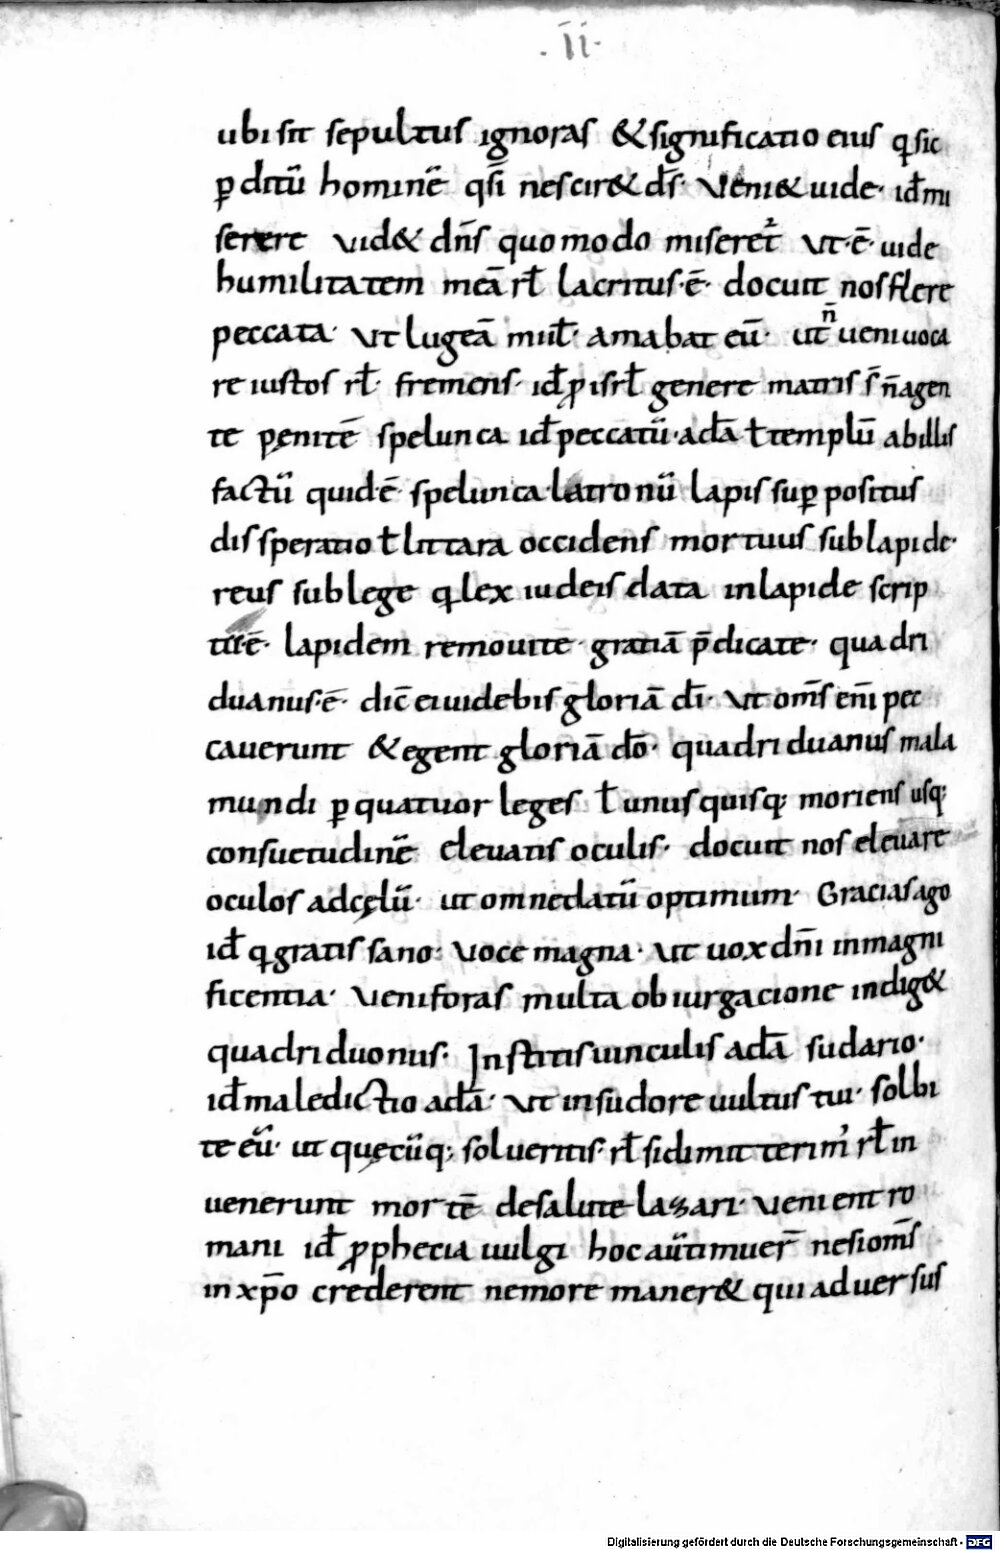 ·II·
ubi sit sepultus ignoras & significatio eius q sic
p ditū hominē qsi nescir& ds· Veni & uide· id mi
serere vid& dns quomodo miseret ut·ē· uide
humilitatem meā rł lacritus·ē· docuit nos flere
peccata· ut lugeā mut· amabat eū· ut n̄ ueni uoca
re iustos rł· fremens· id p isrł genere matris s n̄ agen
te penitē spelunca id peccatū· adā ł templū ab illis
factū quidē· spelunca latronū lapis sup positus
dissperatio ł littara occidens mortuus sub lapide·
reus sub lege q lex iudeis data in lapide scrip
tus·ē· lapidem remouite· gratiā p̄dicate· quadri
duanus·ē· dic̄ ei uidebis gloriā dī· ut oms enī pec
cauerunt & egent gloriā dō· quadriduanus mala
mundi p quatuor leges ł unusquisq; moriens usq;
consuetudinē eleuatis oculis· docuit nos eleuare
oculos ad cęlū· ut omne datū optimum· Gracias ago
id q gratis sano· voce magna· ut uox dnī in magni
ficentia· veni foras multa obiurgacione indig&
quadriduonus· Institis uinculis adā sudario·
id maledictio adā· ut in sudore uultus tui· solbi
te eū· ut quęcūq; solueritis· rł si dimitterim' rł in
uenerunt mortē de salute lazari· venient ro
mani id p̱phecia uulgi hoc aūtimuer̄ nesi om̄s
in xp̄o crederent nemo remaner& qui aduersus
Digitalisierung gefördert durch die Deutsche Forschungsgemeinschaft - DFG